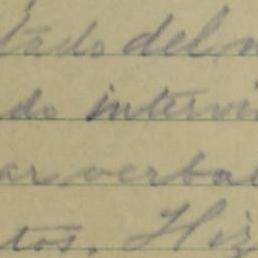 tado del
do intervi
ar verbal
tos. Hiz